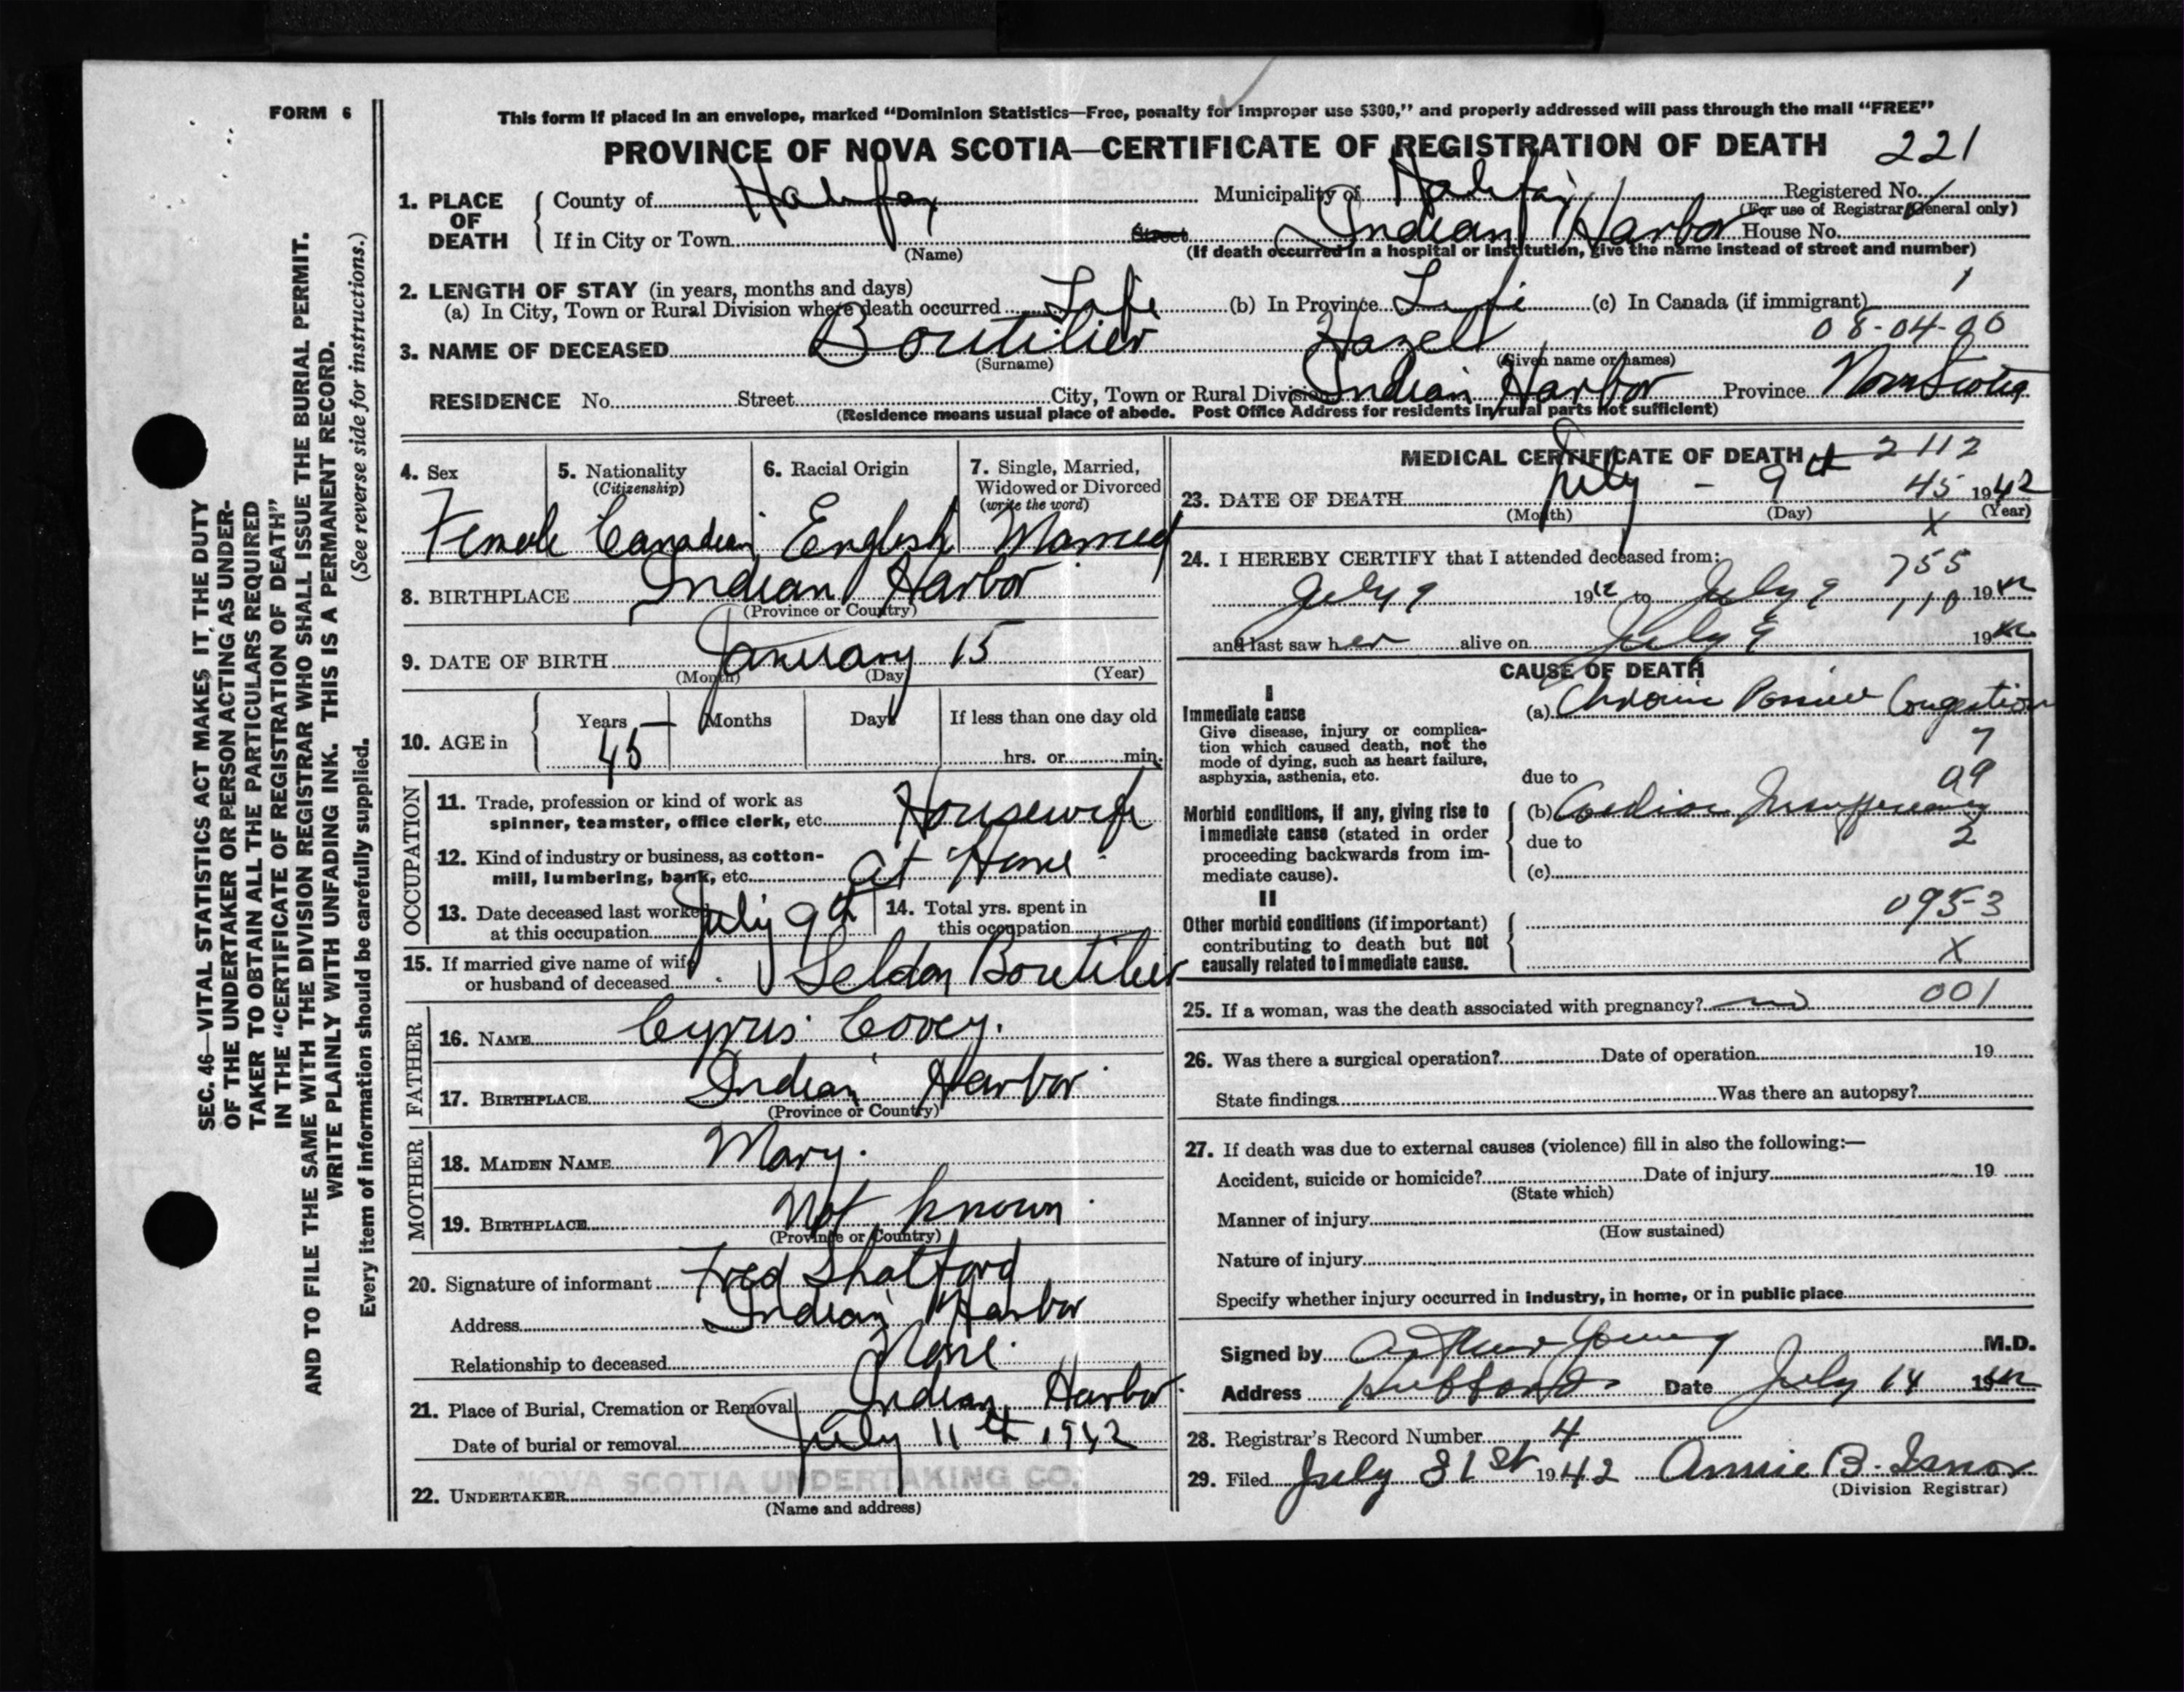 FORM 6
This form if placed in an envelope, marked “Dominion Statistics—Free, penalty for improper use $300,” and properly addressed will pass through the mail “FREE”
PROVINCE OF NOVA SCOTIA—CERTIFICATE OF REGISTRATION OF DEATH 221
1. PLACE OF DEATH
County of Halifax Municipality of Halifax Registered No.
(For use of Registrar General only)
If in City or Town Street Indian Harbor House No.
(Name) (If death occurred in a hospital or institution, give the name instead of street and number)
2. LENGTH OF STAY (in years, months and days) 1
(a) In City, Town or Rural Division where death occurred Life (b) In Province Life (c) In Canada (if immigrant)
08-04-90
3. NAME OF DECEASED Boutilier Hazel
(Surname) (Given name or names)
RESIDENCE No. Street City, Town or Rural Division Indian Harbor Province Nova Scotia
(Residence means usual place of abode. Post Office Address for residents in rural parts not sufficient)
4. Sex 5. Nationality (Citizenship) 6. Racial Origin 7. Single, Married, Widowed or Divorced (write the word)
Female Canadian English Married
8. BIRTHPLACE Indian Harbor
(Province or Country)
9. DATE OF BIRTH January 15
(Month) (Day) (Year)
10. AGE in Years Months Days If less than one day old
45 hrs. or min.
OCCUPATION
11. Trade, profession or kind of work as
spinner, teamster, office clerk, etc. Housewife
12. Kind of industry or business, as cotton-
mill, lumbering, bank, etc. at Home
13. Date deceased last worked
at this occupation July 9th
14. Total yrs. spent in
this occupation
15. If married give name of wife
or husband of deceased Seldon Boutilier
FATHER
16. NAME Cyrus Covey.
17. BIRTHPLACE Indian Harbor
(Province or Country)
MOTHER
18. MAIDEN NAME Mary.
19. BIRTHPLACE Not known
(Province or Country)
20. Signature of informant Fred Shatford
Address Indian Harbor
Relationship to deceased None.
21. Place of Burial, Cremation or Removal Indian Harbor
Date of burial or removal July 11th 1942
22. UNDERTAKER NOVA SCOTIA UNDERTAKING CO.
(Name and address)
MEDICAL CERTIFICATE OF DEATH 2112
23. DATE OF DEATH July - 9th 45 1942
(Month) (Day) (Year)
X
24. I HEREBY CERTIFY that I attended deceased from:
755
July 9 1942 to July 9 110 1942
and last saw her alive on July 9 1942
CAUSE OF DEATH
I
Immediate cause
Give disease, injury or complica-
tion which caused death, not the
mode of dying, such as heart failure,
asphyxia, asthenia, etc.
(a) Chronic Passive Congestion
7
due to 09
Morbid conditions, if any, giving rise to
immediate cause (stated in order
proceeding backwards from im-
mediate cause).
(b) Cardiac Insufficiency
due to 2
(c)
II
Other morbid conditions (if important)
contributing to death but not
causally related to immediate cause.
095-3
X
25. If a woman, was the death associated with pregnancy? no 001
26. Was there a surgical operation? Date of operation 19
State findings Was there an autopsy?
27. If death was due to external causes (violence) fill in also the following:—
Accident, suicide or homicide? Date of injury 19
(State which)
Manner of injury
(How sustained)
Nature of injury
Specify whether injury occurred in industry, in home, or in public place
Signed by Arthur Young M.D.
Address Hubbards Date July 14 1942
28. Registrar's Record Number 4
29. Filed July 31st 1942 Annie B. Isnor
(Division Registrar)
SEC. 46—VITAL STATISTICS ACT MAKES IT THE DUTY
OF THE UNDERTAKER OR PERSON ACTING AS UNDER-
TAKER TO OBTAIN ALL THE PARTICULARS REQUIRED
IN THE “CERTIFICATE OF REGISTRATION OF DEATH”
AND TO FILE THE SAME WITH THE DIVISION REGISTRAR WHO SHALL ISSUE THE BURIAL PERMIT.
WRITE PLAINLY WITH UNFADING INK. THIS IS A PERMANENT RECORD.
(See reverse side for instructions.)
Every item of information should be carefully supplied.